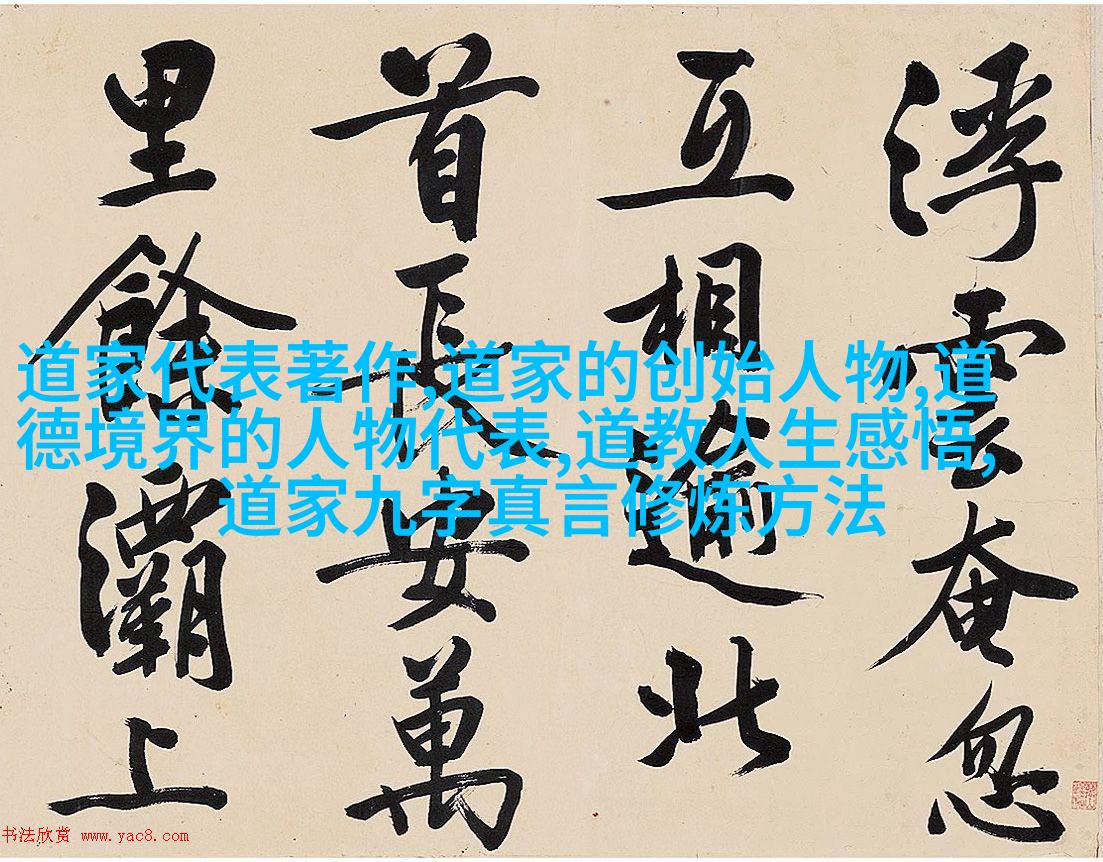 浮雲奄忽
互相逾北
首長安萬
里餘灞上
道家代表著作,道家的创始人物,道
德境界的人物代表,道教人生感悟,
道家九字真言修炼方法
书法欣赏 www.yac8.com